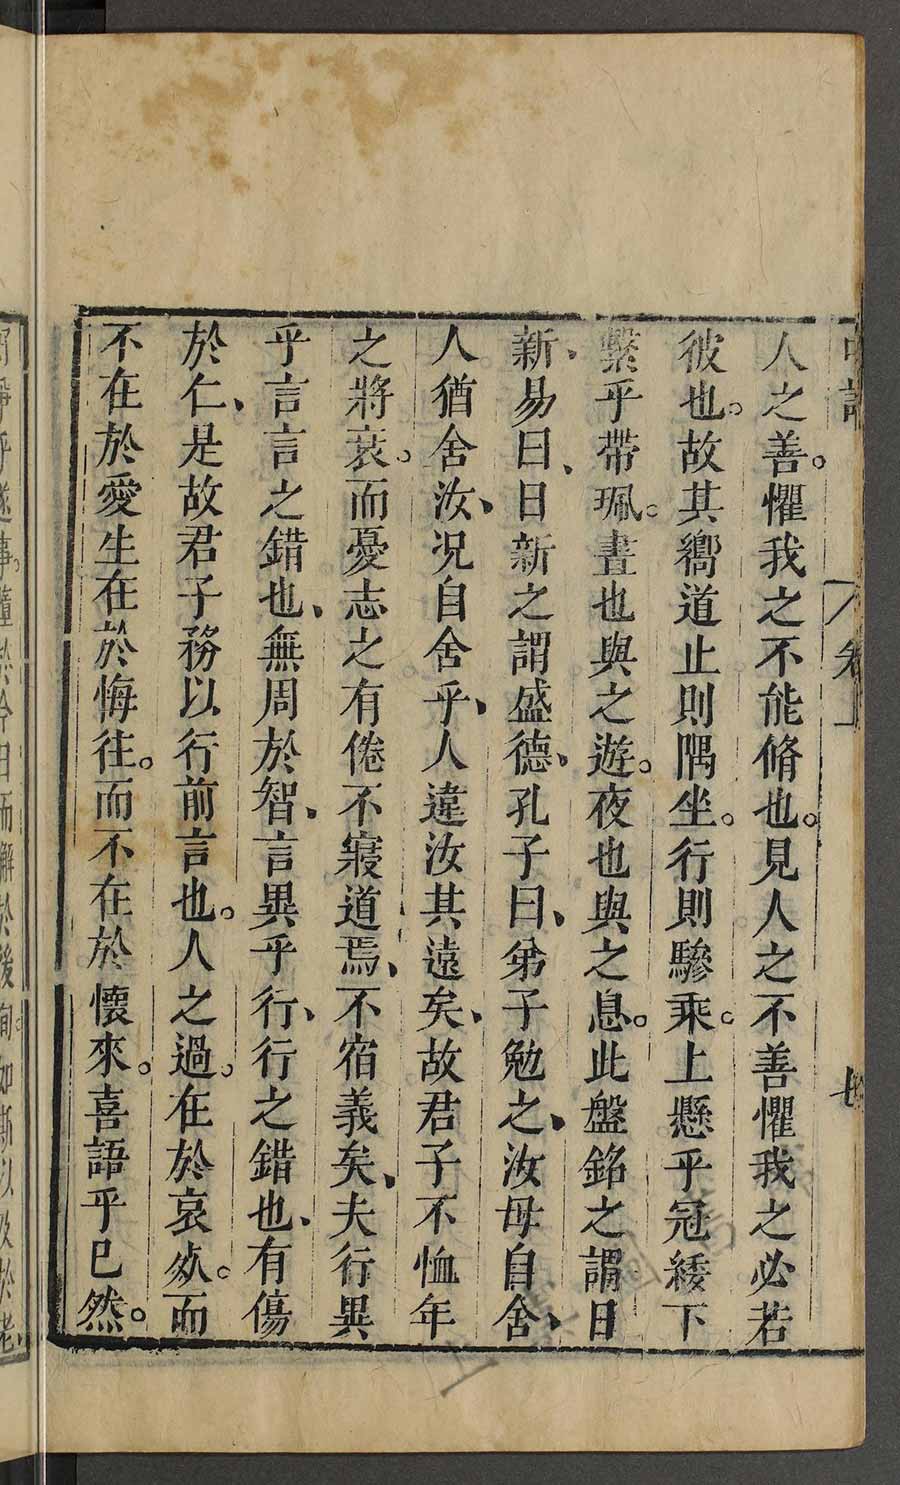 人之善。懼我之不能脩也。見人之不善懼我之必若
彼也。故其嚮道止則隅坐。行則驂乘。上懸乎冠緌下
繫乎帶珮。晝也與之遊。夜也與之息。此盤銘之謂日
新、易曰、日新之謂盛德、孔子曰、弟子勉之、汝毋自舍、
人猶舍汝、况自舍乎、人違汝其遠矣、故君子不恤年
之將衰。而憂志之有倦不寢道焉、不宿義矣、夫行異
乎言言之錯也、無周於智、言異乎行、行之錯也、有傷
於仁、是故君子務以行前言也。人之過。在於哀死。而
不在於愛生在於悔往。而不在於懷來。喜語乎已然。
卷上